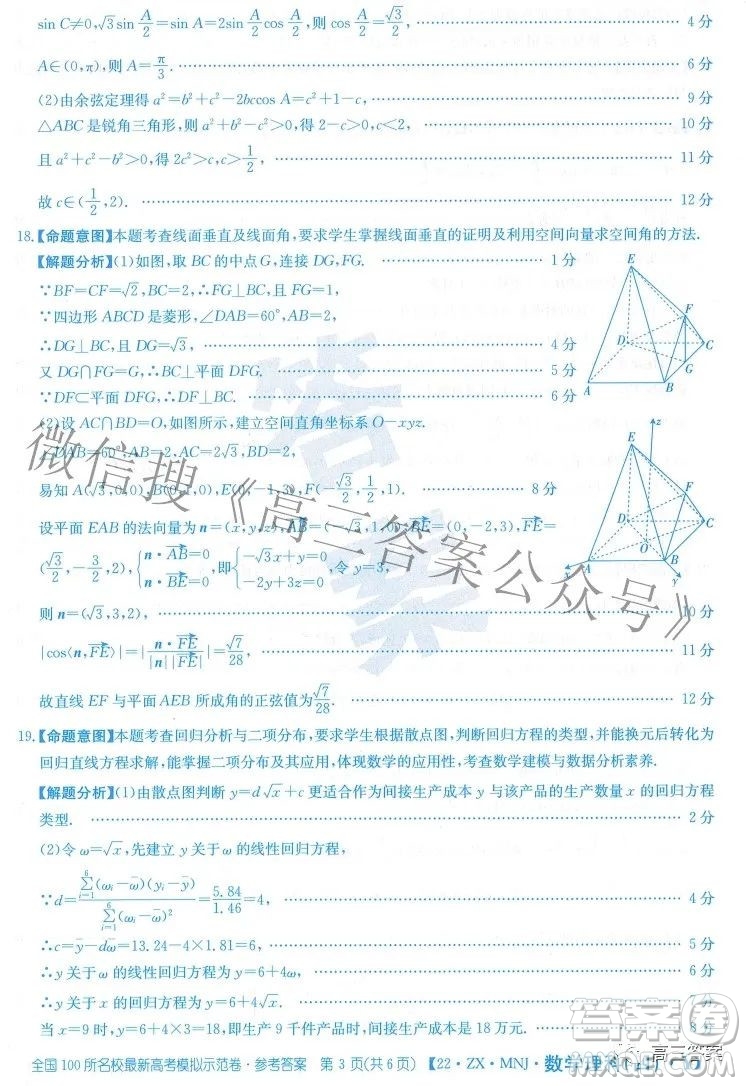 sin C≠0,√3sin A/2=sin A=2sin A/2 cos A/2,则 cos A/2=√3/2, 4分
A∈(0,π),则 A=π/3. 6分
(2)由余弦定理得 a²=b²+c²-2bccos A=c²+1-c, 9分
△ABC 是锐角三角形,则 a²+b²-c²>0,得 2-c>0,c<2, 10分
且 a²+c²-b²>0,得 2c²>c,c>1/2, 11分
故 c∈(1/2,2). 12分
18.【命题意图】本题考查线面垂直及线面角,要求学生掌握线面垂直的证明及利用空间向量求空间角的方法.
【解题分析】(1)如图,取 BC 的中点G,连接 DG,FG. 1分
∵BF=CF=√2,BC=2,∴FG⊥BC,且 FG=1.
∵四边形 ABCD 是菱形,∠DAB=60°,AB=2,
∴DG⊥BC,且 DG=√3, 4分
又 DG∩FG=G,∴BC⊥平面 DFG. 5分
∵DF⊂平面 DFG,∴DF⊥BC. 6分
(2)设 AC∩BD=O,如图所示,建立空间直角坐标系 O-xyz.
∠DAB=60°,AB=2,AC=2√3,BD=2,
易知 A(√3,0,0),B(0,1,0),E(0,-1,3),F(-√3/2,1/2,1). 8分
设平面 EAB 的法向量为 n=(x,y,z),AB=(-√3,1,0),BE=(0,-2,3),FE=
(√3/2,-3/2,2),{n·AB=0 n·BE=0,即{-√3x+y=0 -2y+3z=0,令 y=3,
则 n=(√3,3,2), 10分
|cos⟨n,FE⟩|=|n·FE/|n||FE||=√7/28, 11分
故直线 EF 与平面 AEB 所成角的正弦值为√7/28. 12分
E
F
D
C
G
A
B
z
E
F
D
C
O
A
B
x
y
19.【命题意图】本题考查回归分析与二项分布,要求学生根据散点图,判断回归方程的类型,并能换元后转化为
回归直线方程求解,能掌握二项分布及其应用,体现数学的应用性,考查数学建模与数据分析素养.
【解题分析】(1)由散点图判断 y=d√x+c 更适合作为间接生产成本 y 与该产品的生产数量 x 的回归方程
类型. 2分
(2)令 ω=√x,先建立 y 关于 ω 的线性回归方程,
∵d=∑(i=1→6)(ωi-ω̄)(yi-ȳ)/∑(i=1→6)(ωi-ω̄)²=5.84/1.46=4, 4分
∴c=ȳ-dω̄=13.24-4×1.81=6, 5分
∴y 关于 ω 的线性回归方程为 y=6+4ω, 6分
∴y 关于 x 的回归方程为 y=6+4√x.
当 x=9 时,y=6+4×3=18,即生产 9 千件产品时,间接生产成本是 18 万元. 8分
全国 100 所名校最新高考模拟示范卷·参考答案 第 3 页(共 6 页)【22·ZX·MNJ·数学理科
答案
微信搜《高三答案公众号》
高三答案
答案圈
MXQE.COM